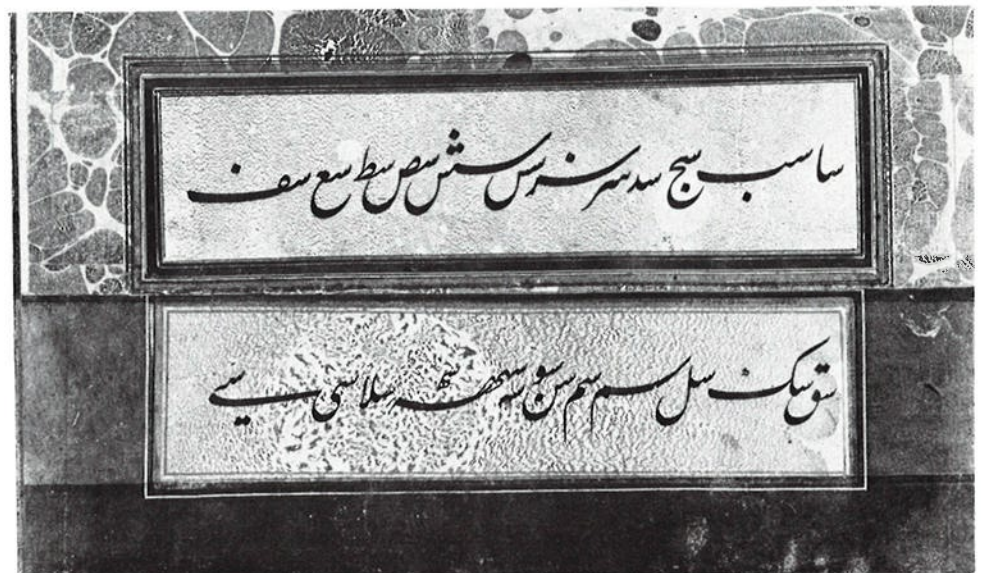 سا سب سج سد سر سز سس سش سص سط سع سف
سق سک سل سم سم سن سو سه سھ سھ سلا سی سے